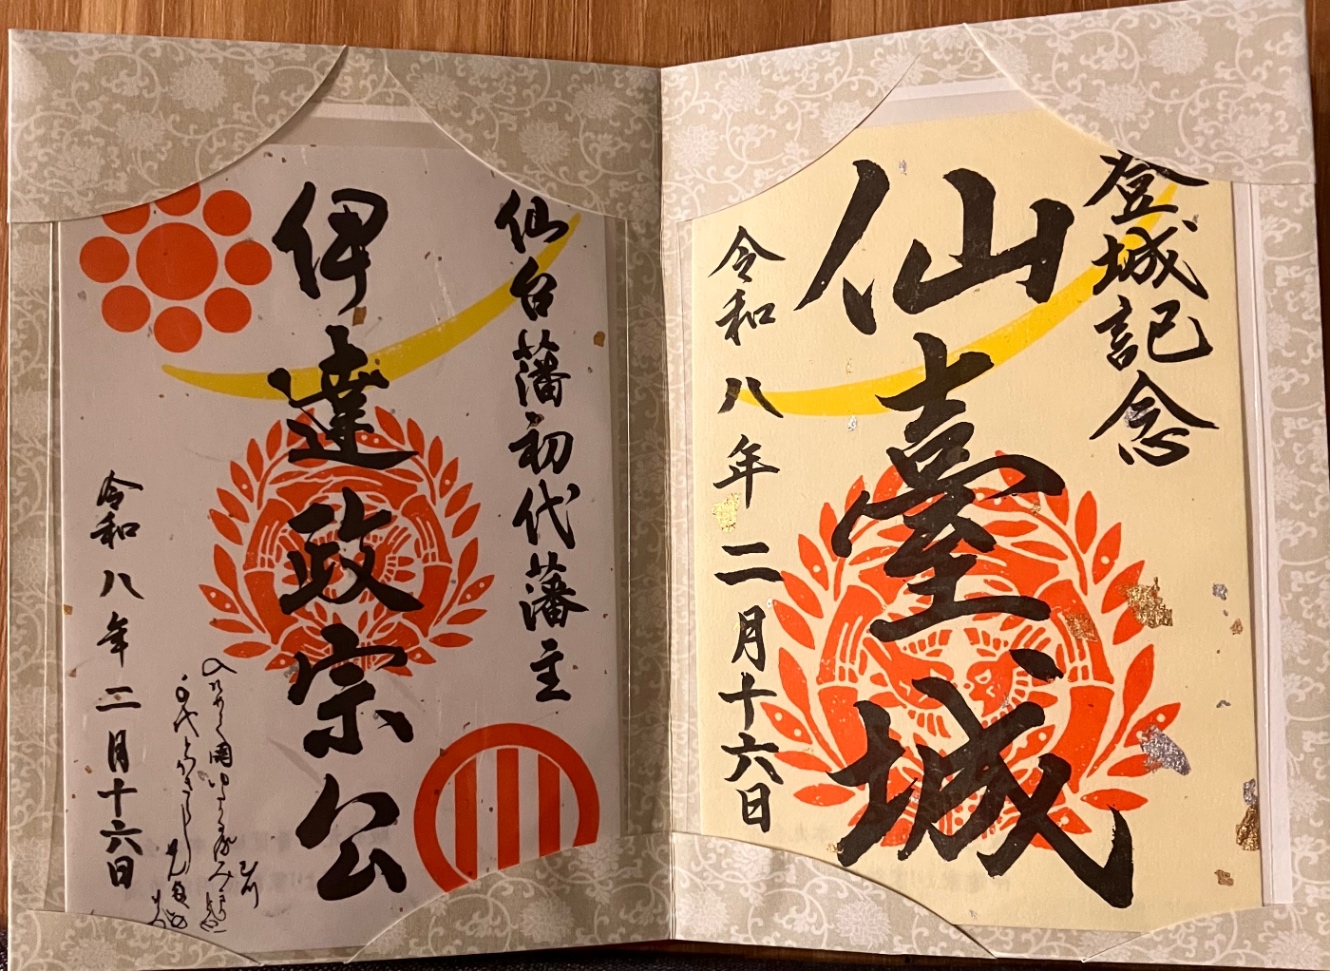 登城記念
仙臺城
令和八年二月十六日
仙台藩初代藩主
伊達政宗公
令和八年二月十六日